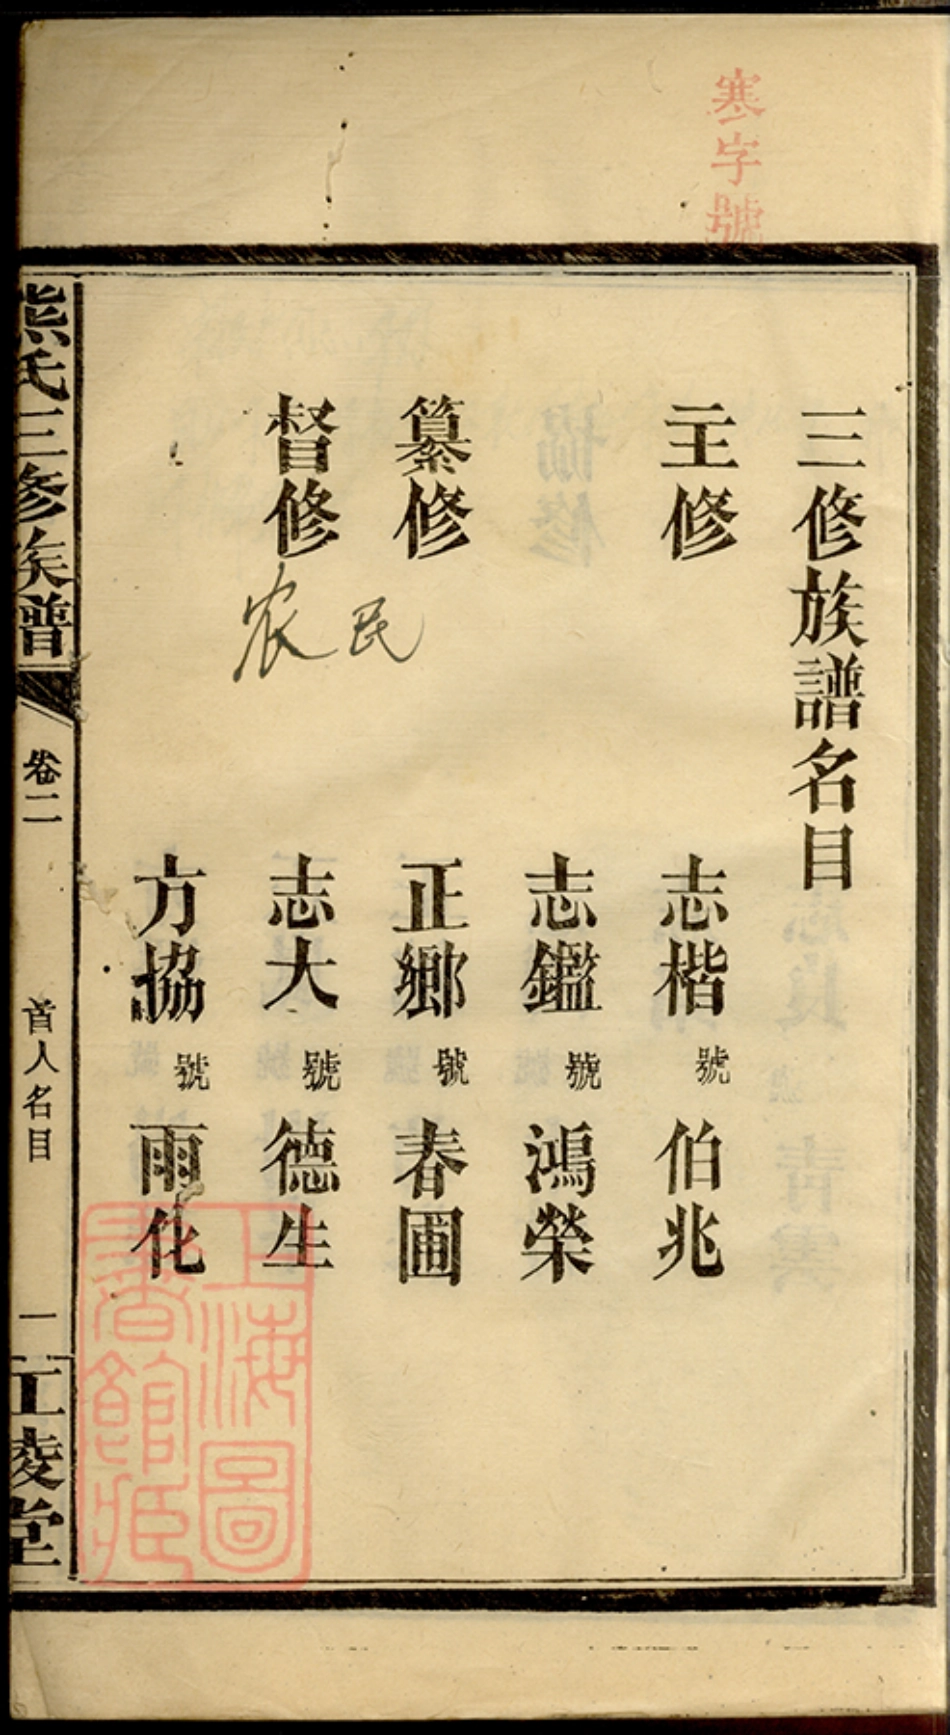 寒字號
三修族譜名目
主修 志楷 號 伯兆
志鑑 號 鴻榮
纂修 正鄉 號 春圃
督修 志大 號 德生
農民
方協 號 雨化
熊氏三修族譜 卷二 首人名目 一 江陵堂
上海圖書館藏